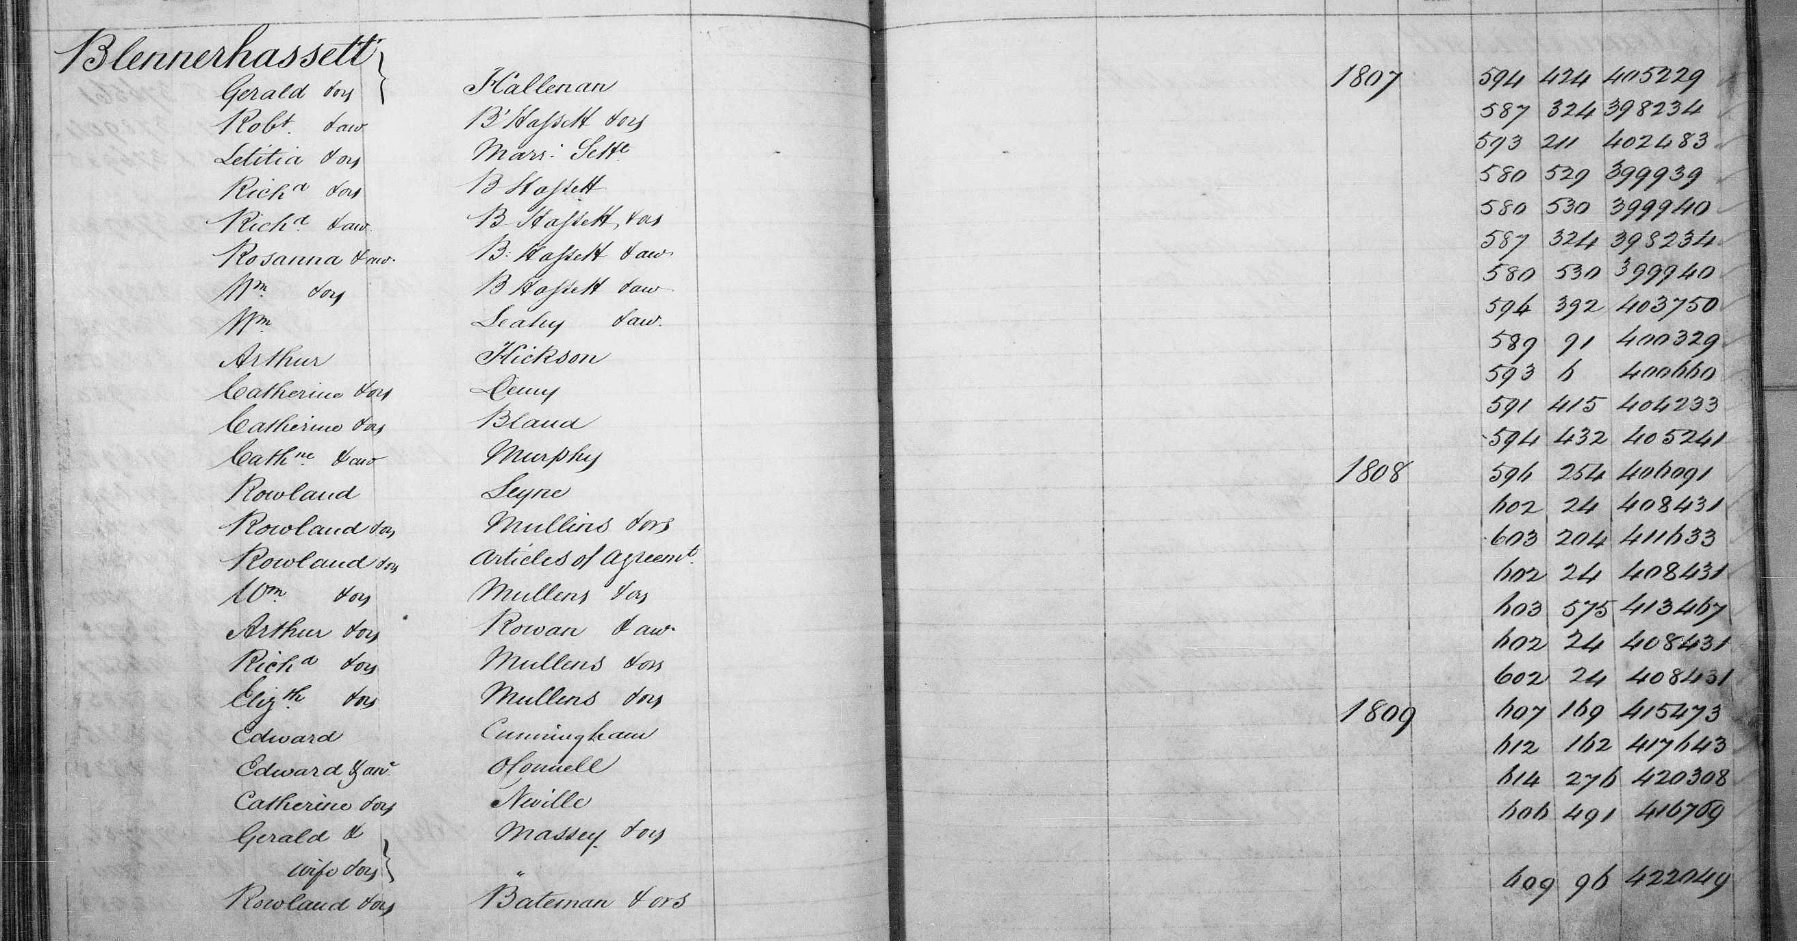 Blennerhassett
Gerald &ors } Hallenan 1807 594 424 405229
Robt. &anr B'Hassett &ors 587 324 398234
Letitia &ors Marr: Settt 593 211 402483
Richd &ors B Hassett 580 529 399939
Richd &anr B Hassett &ors 580 530 399940
Rosanna &anr B: Hassett &anr 587 324 398234
Wm &ors B Hassett &anr 580 530 399940
Wm Leahy &anr 594 392 403750
Arthur Hickson 589 91 400329
Catherine &ors Denny 593 6 400660
Catherine &ors Bland 591 415 404233
Cathne &anr Murphy 594 432 405241
Rowland Leyne 1808 596 254 406091
Rowland &ors Mullins &ors 602 24 408431
Rowland &ors Articles of Agreemt. 603 204 411633
Wm &ors Mullens &ors 602 24 408431
Arthur &ors Rowan &anr 603 575 413467
Richd &ors Mullens &ors 602 24 408431
Elizth &ors Mullens &ors 602 24 408431
Edward Cunningham 1809 607 169 415473
Edward & anr OConnell 612 162 417643
Catherine &ors Neville 614 276 420308
Gerald & Massey &ors 606 491 416769
wife &ors } "
Rowland &ors Bateman &ors 609 96 422049